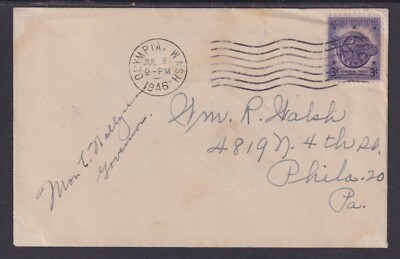 OLYMPIA, WASH.
JUL 8
9-PM
1946
3¢ 3¢
Mon C. Wallgren
Governor.
Wm. R. Walsh
4819 N. 4th St.
Phila. 20
Pa.